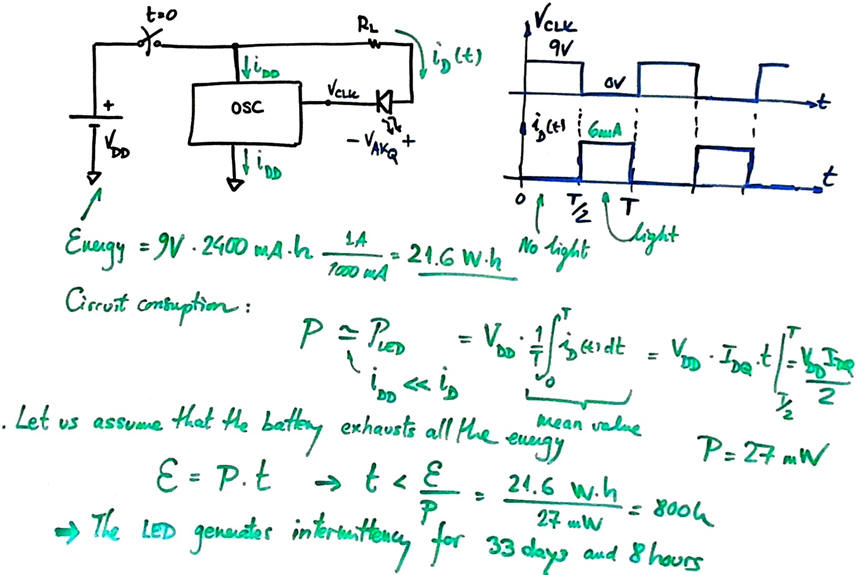 t=0
R_L
i_D(t)
i_DD
V_CLK
OSC
+
V_DD
i_DD
- V_AKQ +
V_CLK
9V
0V
t
i_D(t)
6mA
t
0 T/2 T
No light
light
Energy = 9V · 2400 mA·h 1A/1000 mA = 21.6 W·h
Circuit consuption :
P ≃ P_LED = V_DD · 1/T ∫_0^T i_D(t) dt = V_DD · I_DQ · t |_{T/2}^T = V_DD I_DQ / 2
i_DD << i_D
mean value
P = 27 mW
. Let us assume that the battery exhausts all the energy
Ɛ = P·t → t < Ɛ/P = 21.6 W·h / 27 mW = 800h
⇒ The LED generates intermittency for 33 days and 8 hours